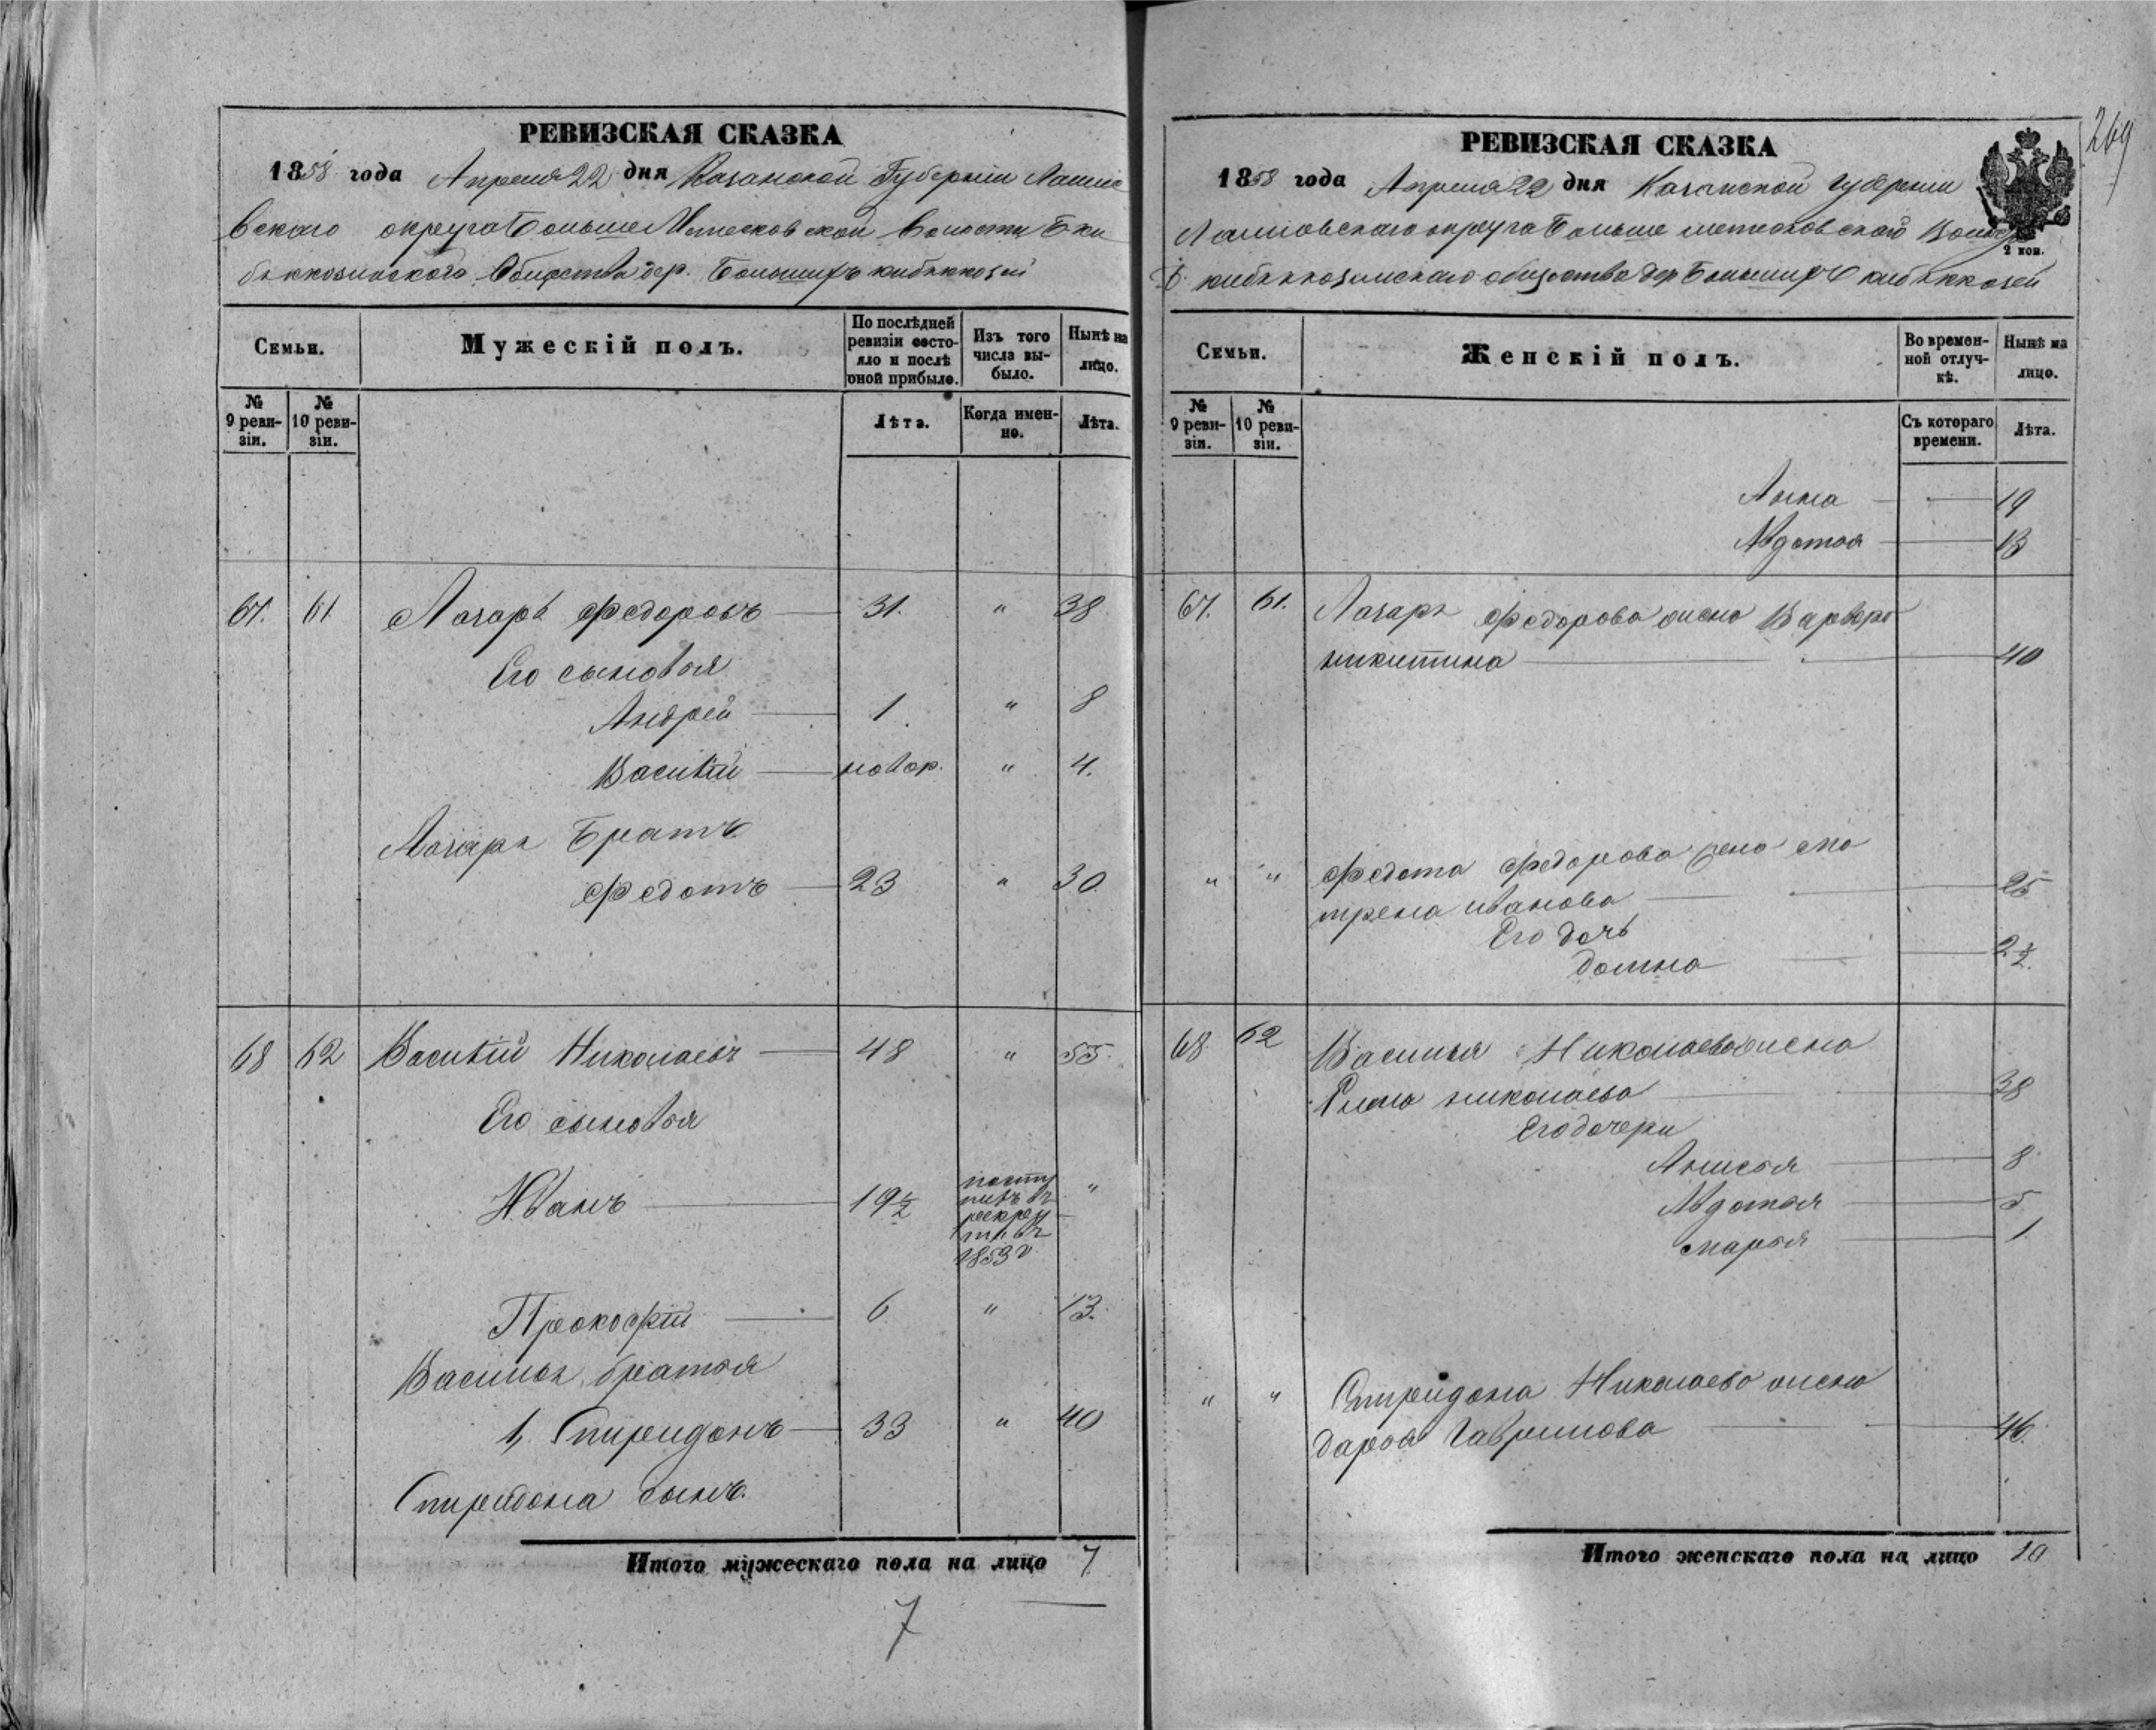 РЕВИЗСКАЯ СКАЗКА
1858 года Апреля 22 дня Казанской Губернии Лаише
вскаго округа Больше Метесковской Волости Б ки
бяккозинскаго Общества дер. Большихъ кибяккозей
Семьи.
Мужескій полъ.
По послѣдней ревизіи состояло и послѣ оной прибыло.
Изъ того числа выбыло.
Нынѣ на лицо.
№ 9 ревизіи.
№ 10 ревизіи.
Лѣта.
Когда именно.
Лѣта.
67. 61 Лазарь Федоровъ 31. " 38
Его сыновья
Андрей 1 " 8
Василій новор. " 4.
Лазаря Братъ
Федотъ 23 " 30
68 62 Василій Николаевъ 48 " 55.
Его сыновья
Иванъ 19½ поступилъ въ рекруты въ 1853 г "
Прокофій 6 " 13.
Василья братья
1, Спиридонъ 33 " 40
Спиридона сынъ.
Итого мужескаго пола на лицо 7
7
269
РЕВИЗСКАЯ СКАЗКА
1858 года Апреля 22 дня Казанской Губернии
Лаишевскаго округа Больше метесковской Волости
Б. кибяккозинскаго общества дер Большихъ кибяккозей
2 коп.
Семьи.
Женскій полъ.
Во временной отлучкѣ.
Нынѣ на лицо.
№ 9 ревизіи.
№ 10 ревизіи.
Съ котораго времени.
Лѣта.
Анна 19
Авдотья 13
67. 61. Лазаря Федорова жена Варвара
никитина 40
" " Федота Федорова жена Ма
трена иванова 25
Его дочь
домна 2½
68 62 Василья Николаева жена
николаева 38
Его дочери
Анисья 8
Авдотья 5
марья 1
" " Спиридона Николаева жена
дарья Гаврилова 46.
Итого женскаго пола на лицо 10